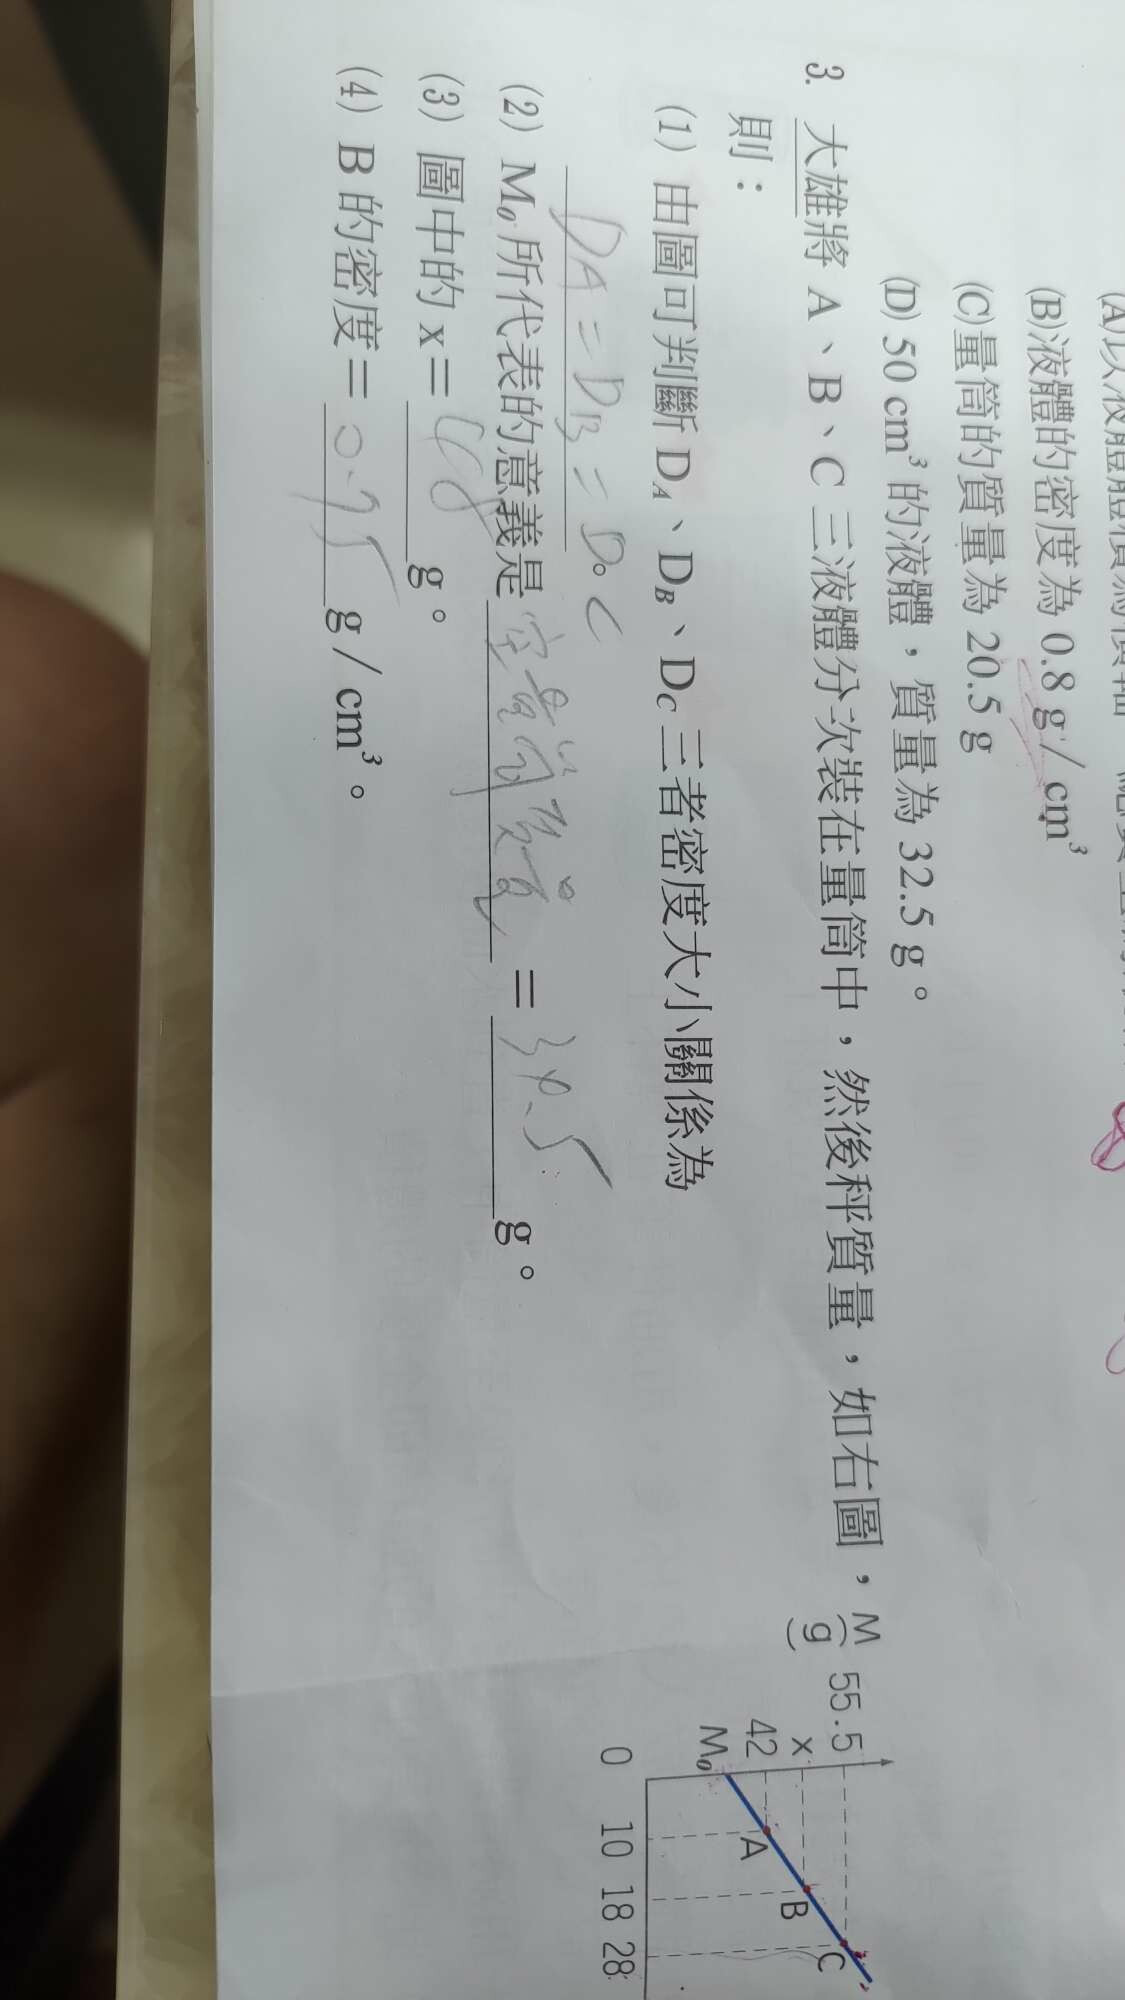 (B)液體的密度為 0.8 g / cm³
(C)量筒的質量為 20.5 g
(D) 50 cm³ 的液體，質量為 32.5 g。
3. 大雄將 A、B、C 三液體分次裝在量筒中，然後秤質量，如右圖，
則：
(1) 由圖可判斷 D_A、D_B、D_C 三者密度大小關係為
DA = DB = D。C
(2) M₀ 所代表的意義是 空量筒質量 = 34.5 g。
(3) 圖中的 x = g。
(4) B 的密度 = 0.75 g / cm³。
M
(g)
55.5
x
42
M₀
A
B
C
0 10 18 28